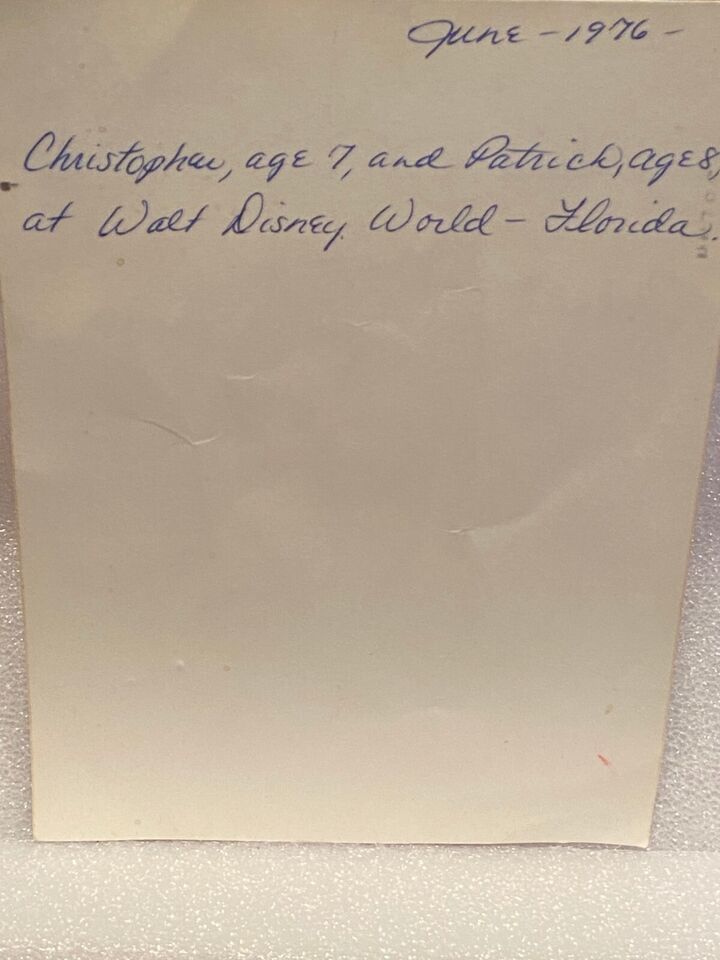 June - 1976 -
Christopher, age 7, and Patrick, age 8,
at Walt Disney World - Florida.